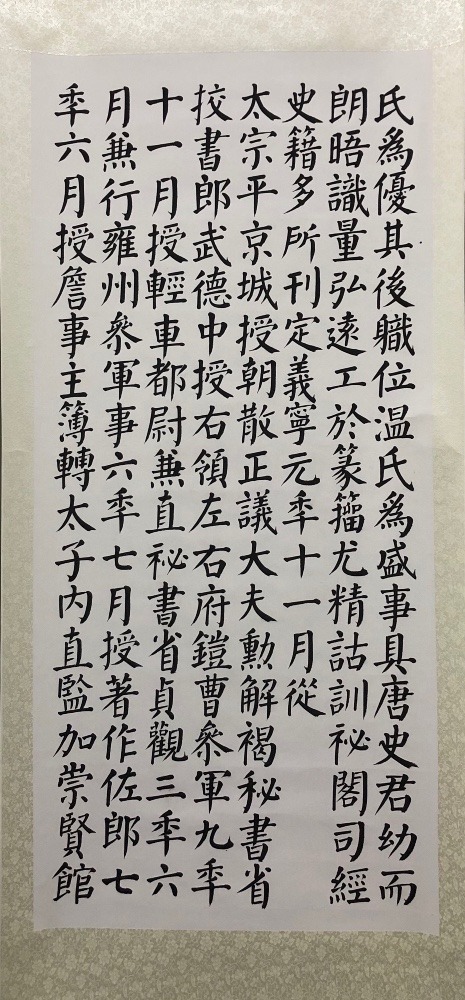 氏為優其後職位温氏為盛事具唐史君幼而
朗晤識量弘遠工於篆籀尤精詁訓祕閣司經
史籍多所刊定義寧元秊十一月從
太宗平京城授朝散正議大夫勳解褐秘書省
挍書郎武德中授右領左右府鎧曹叅軍九秊
十一月授輕車都尉兼直祕書省貞觀三秊六
月兼行雍州叅軍事六秊七月授著作佐郎七
秊六月授詹事主簿轉太子内直監加崇賢館